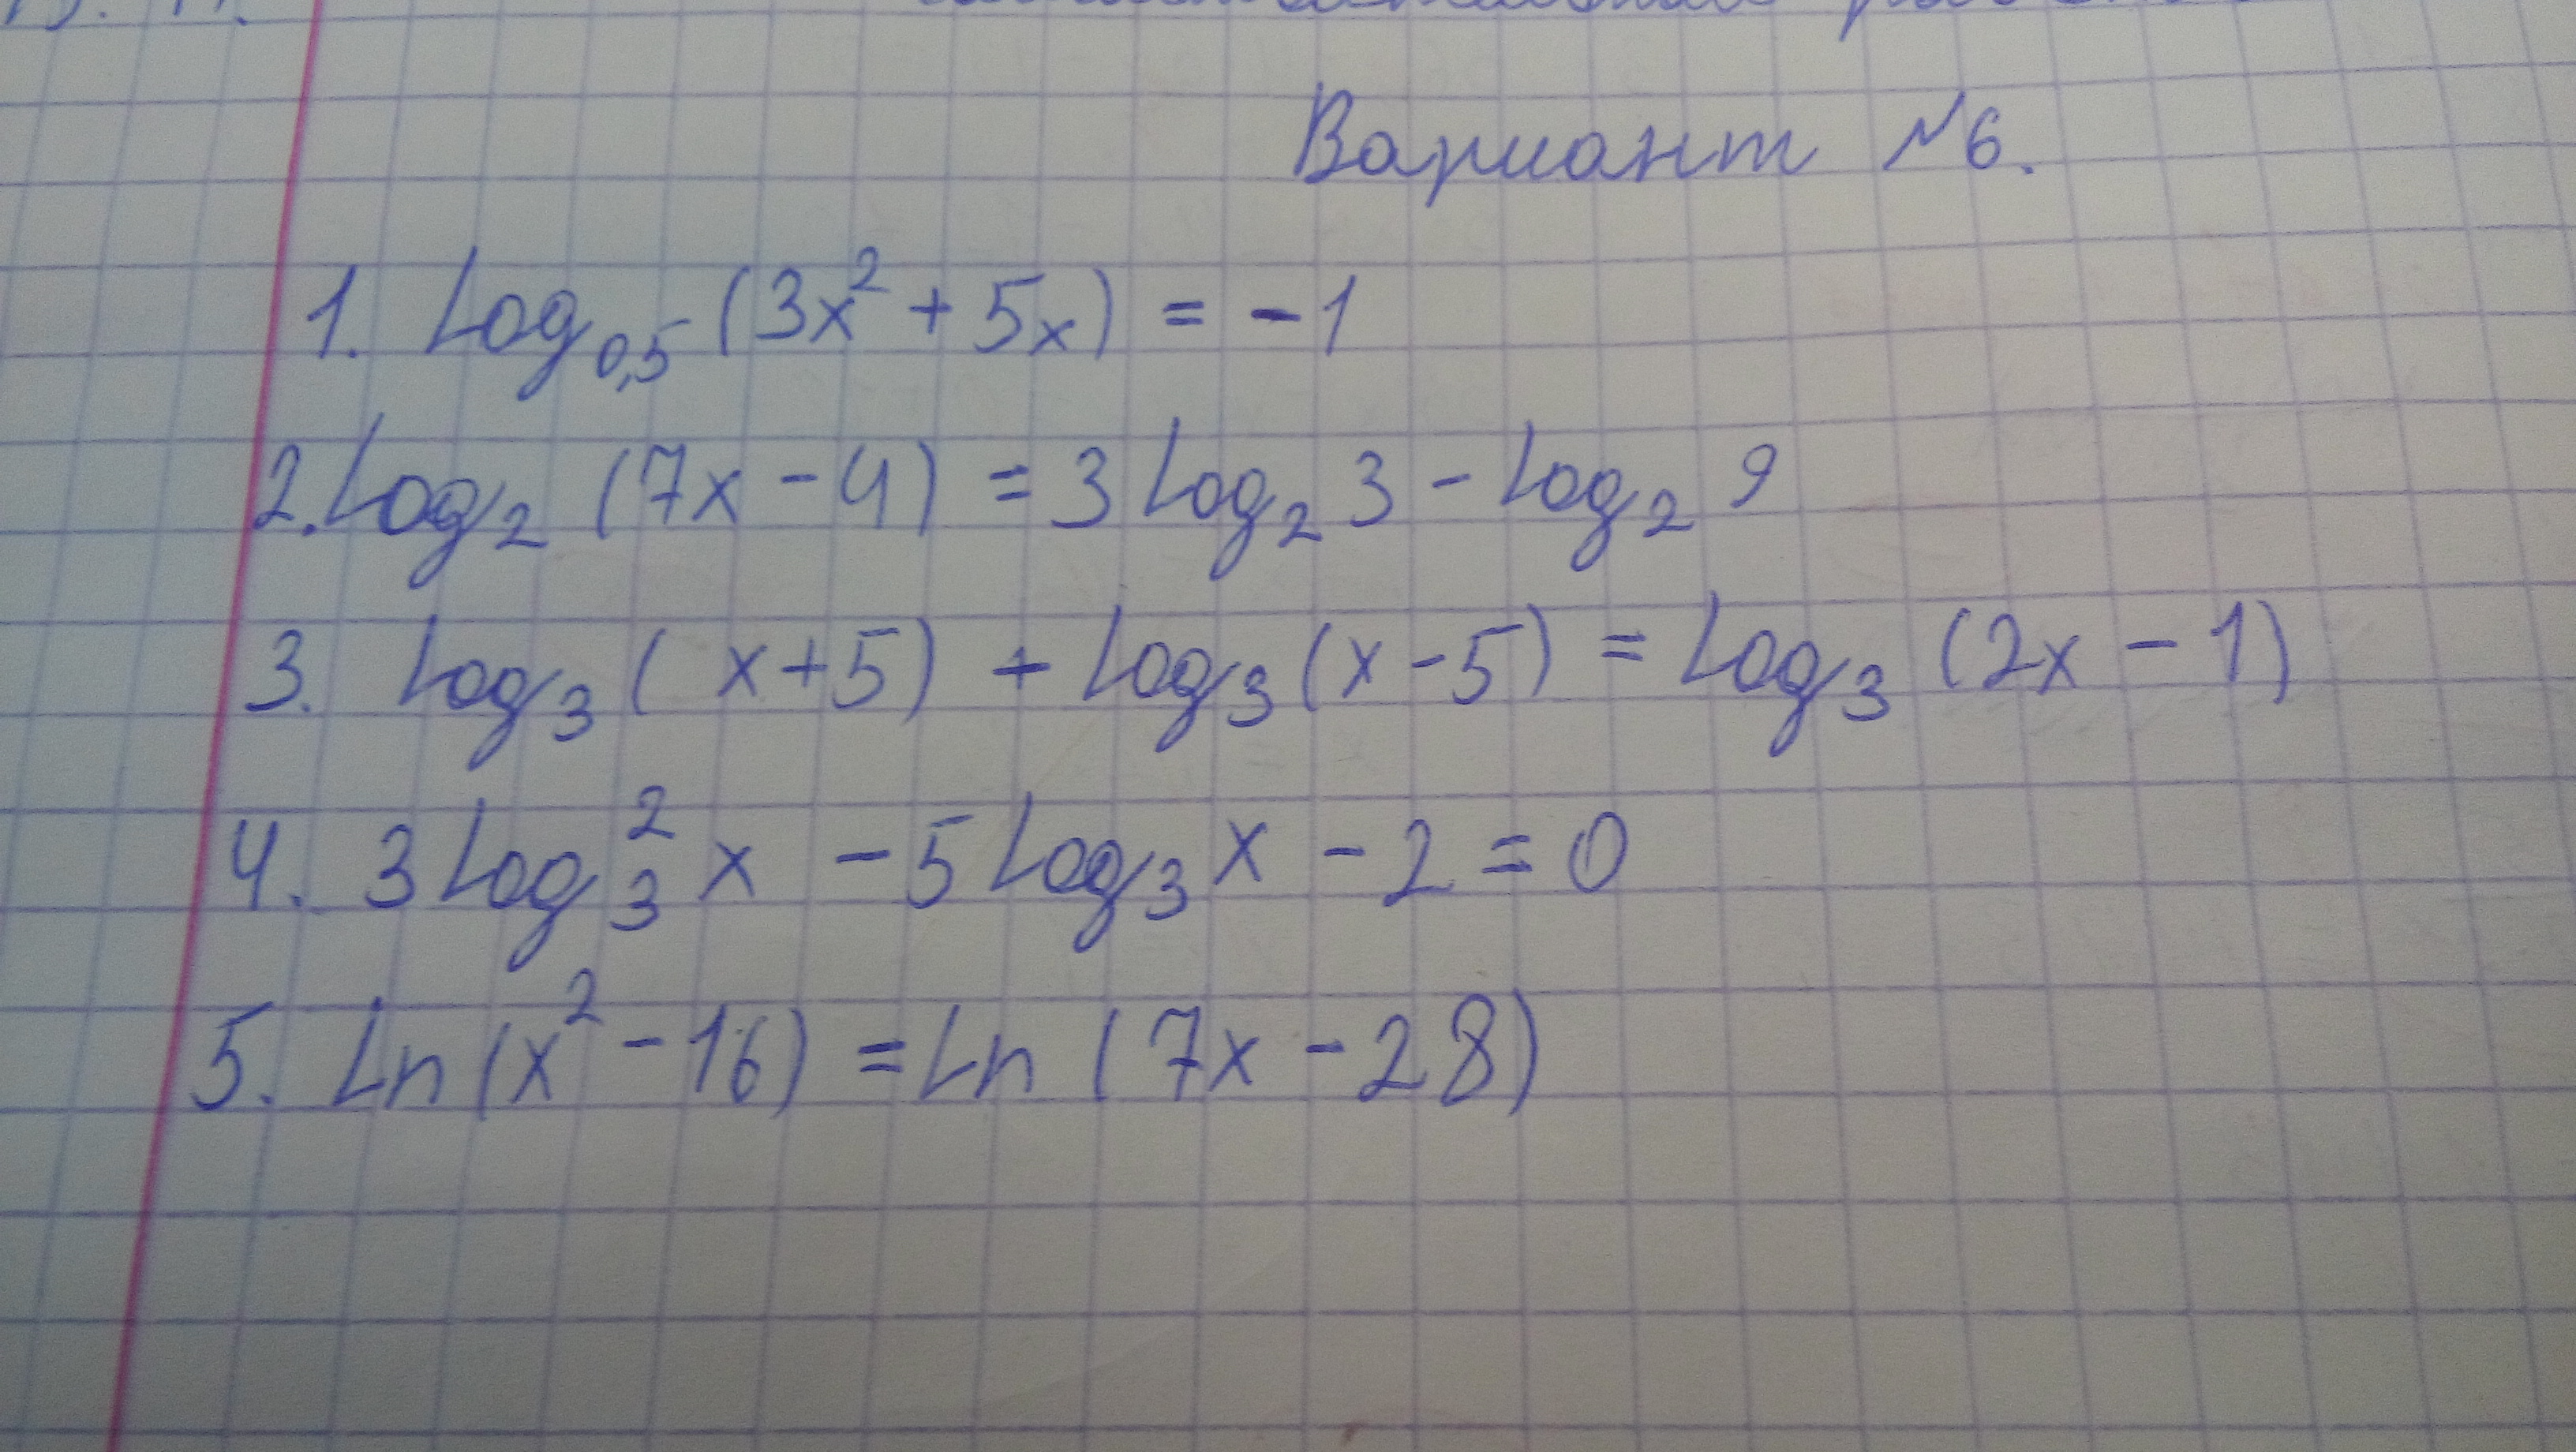 Вариант №6.
1. log₀,₅ (3x² + 5x) = -1
2. log₂ (7x - 4) = 3 log₂ 3 - log₂ 9
3. log₃ (x+5) + log₃ (x-5) = log₃ (2x - 1)
4. 3 log₃² x - 5 log₃ x - 2 = 0
5. Ln (x² - 16) = Ln (7x - 28)